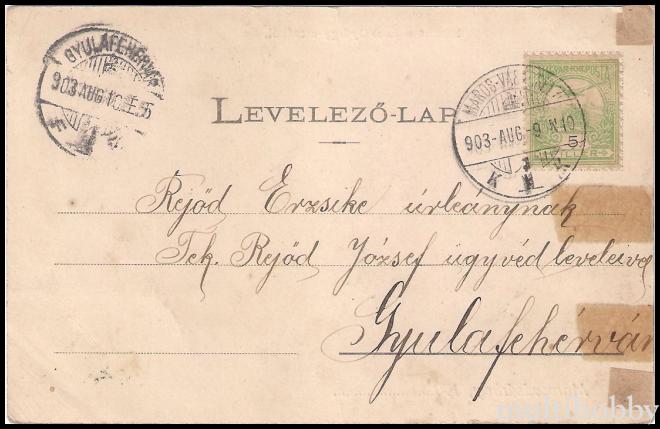 GYULAFEHÉRVÁR
903 AUG 10
LEVELEZŐ-LAP
MAROS-VÁS
903-AUG-9 N10
MAGYAR KIR. POSTA
5
FILLÉR
Rejőd Erzsike úrleánynak
Tek. Rejőd József ügyvéd leveleivel
Gyulafehérvár
multihobby